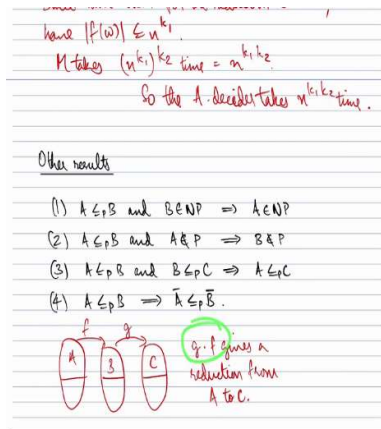 have |f(w)| ≤ n^k₁.
M takes (n^k₁)^k₂ time = n^k₁k₂.
So the A-decider takes n^k₁k₂ time.
Other results
(1) A ≤ₚ B and B ∈ NP ⇒ A ∈ NP
(2) A ≤ₚ B and A ∉ P ⇒ B ∉ P
(3) A ≤ₚ B and B ≤ₚ C ⇒ A ≤ₚ C
(4) A ≤ₚ B ⇒ Ā ≤ₚ B̄.
f g
A B C
g.f gives a
reduction from
A to C.